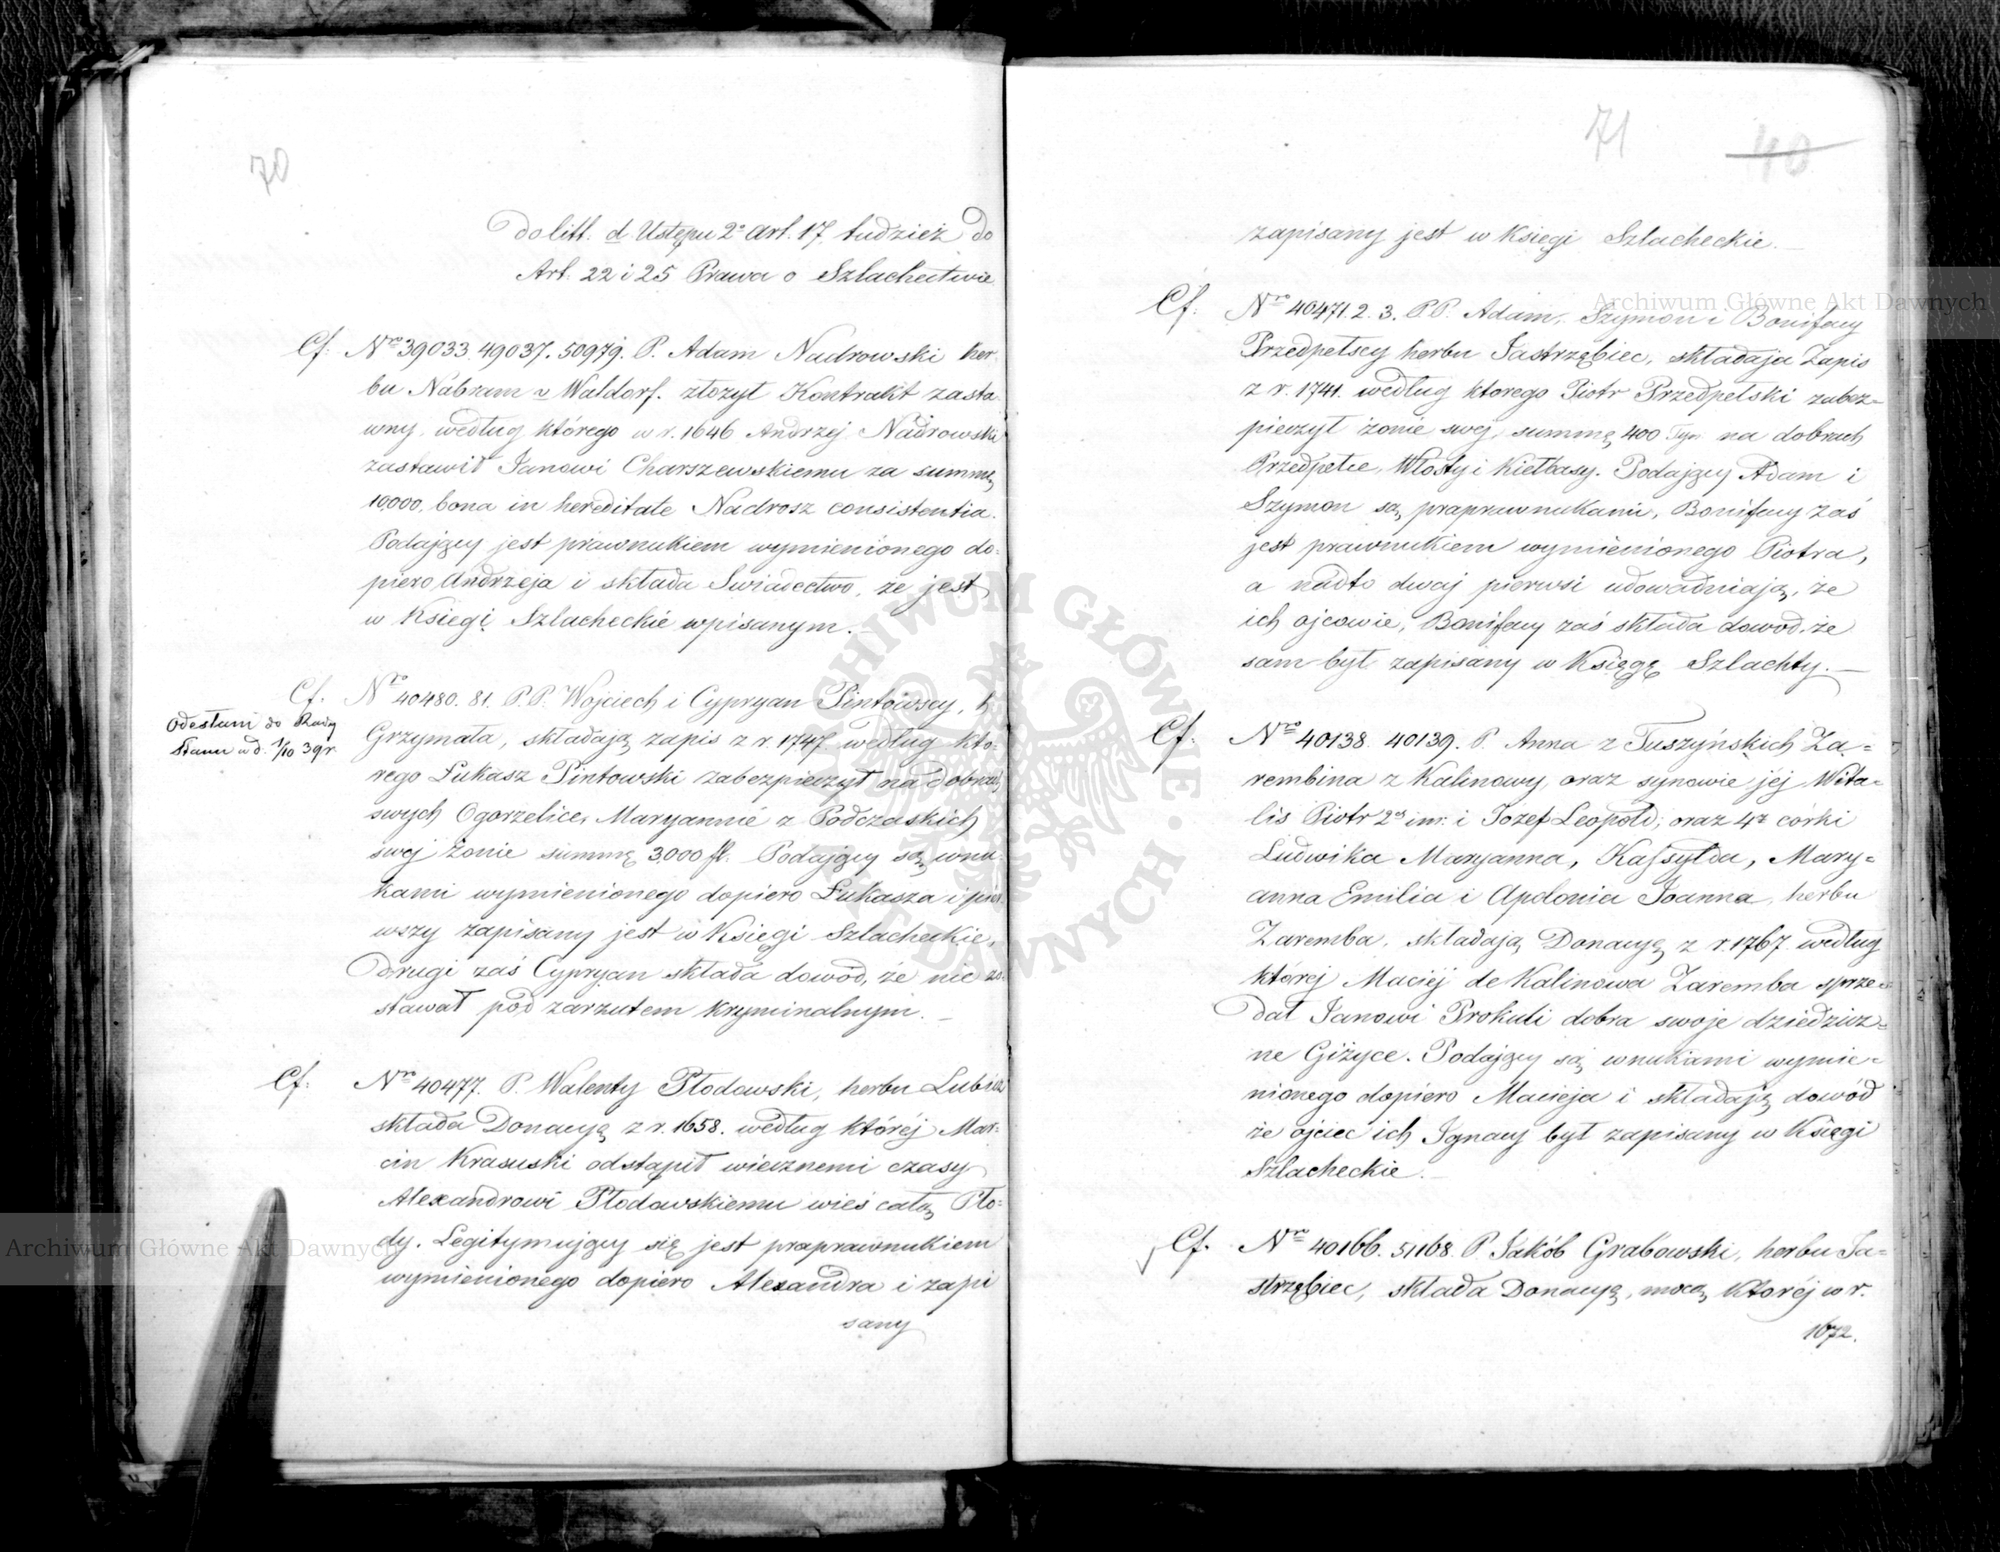 70
do litt. d. Ustępu 2° Art. 17. tudzież do
Art. 22 i 25 Prawa o Szlachectwie
Cf. Nro 39033. 49037. 50979. P. Adam Nadrowski her-
bu Nabram v Waldorf. złożył Kontrakt zasta-
wny, według którego w r. 1646 Andrzej Nadrowski
zastawił Janowi Charszewskiemu za summę
10,000, bona in hereditate Nadrosz consistentia.
Podający jest prawnukiem wymienionego do-
piero Andrzeja i składa Swiadectwo, że jest
w Księgi Szlacheckie wpisanym.—
Cf. Nro 40480. 81. P.P. Woyciech i Cypryan Pintowscy, h.
Odesłani do Rady
Stanu w d. 1/10 39 r.
Grzymała, składają zapis z r. 1747. według któ-
rego Łukasz Pintowski zabezpieczył na dobrach
swych Ogorzelice, Maryannie z Podczaskich
swej żonie summę 3000 fl. Podający są wnu-
kami wymienionego dopiero Łukasza i pier-
wszy zapisany jest w Księgi Szlacheckie,
Drugi zaś Cypryan składa dowód, że nie zo-
stawał pod zarzutem kryminalnym.—
Cf. Nro 40477. P. Walenty Płodowski, herbu Lubicz
składa Donacyą z r. 1658. według której Mar-
cin Krasuski odstąpił wiecznemi czasy
Alexandrowi Płodowskiemu wieś całą Pło-
dy. Legitymujący się jest praprawnukiem
wymienionego dopiero Alexandra i zapi
sany
71
40
zapisany jest w Księgi Szlacheckie.—
Cf. Nro 40471. 2. 3. P.P. Adam, Szymon i Bonifacy
Przedpelscy herbu Jastrzębiec, składają Zapis
z r. 1741. według ktorego Piotr Przedpelski zabez-
pieczył żonie swej summę 400 Tyn na dobrach
Przedpelce, Włosty i Kiełbasy. Podający Adam i
Szymon są praprawnukami, Bonifacy zaś
jest prawnukiem wymienionego Piotra,
a nadto dwaj pierwsi udowadniają, że
ich ojcowie, Bonifacy zaś składa dowod że
sam był zapisany w Księgę Szlachty.—
Cf. Nro 40138. 40139. P. Anna z Tuszyńskich Za-
rembina z Kalinowy, oraz synowie jéj Wita-
lis Piotr 2ga im: i Jozef Leopold; oraz 4ry córki
Ludwika Maryanna, Kassylda, Mary-
anna Emilia i Apolonia Joanna, herbu
Zaremba, składają Donacyą z r. 1767. według
której Maciéj de Kalinowa Zaremba sprze-
dał Janowi Prokuli dobra swoje dziedzicz-
ne Giżyce. Podający są wnukami wymie-
nionego dopiero Macieja i składają dowód
że ojciec ich Ignacy był zapisany w Księgi
Szlacheckie.—
Cf. Nro 40166. 51168. P Jakób Grabowski, herbu Ja-
strzębiec, składa Donacyą, mocą której w r.
1672.
Archiwum Główne Akt Dawnych
Archiwum Główne Akt Dawnych
ARCHIWUM GŁÓWNE AKT DAWNYCH